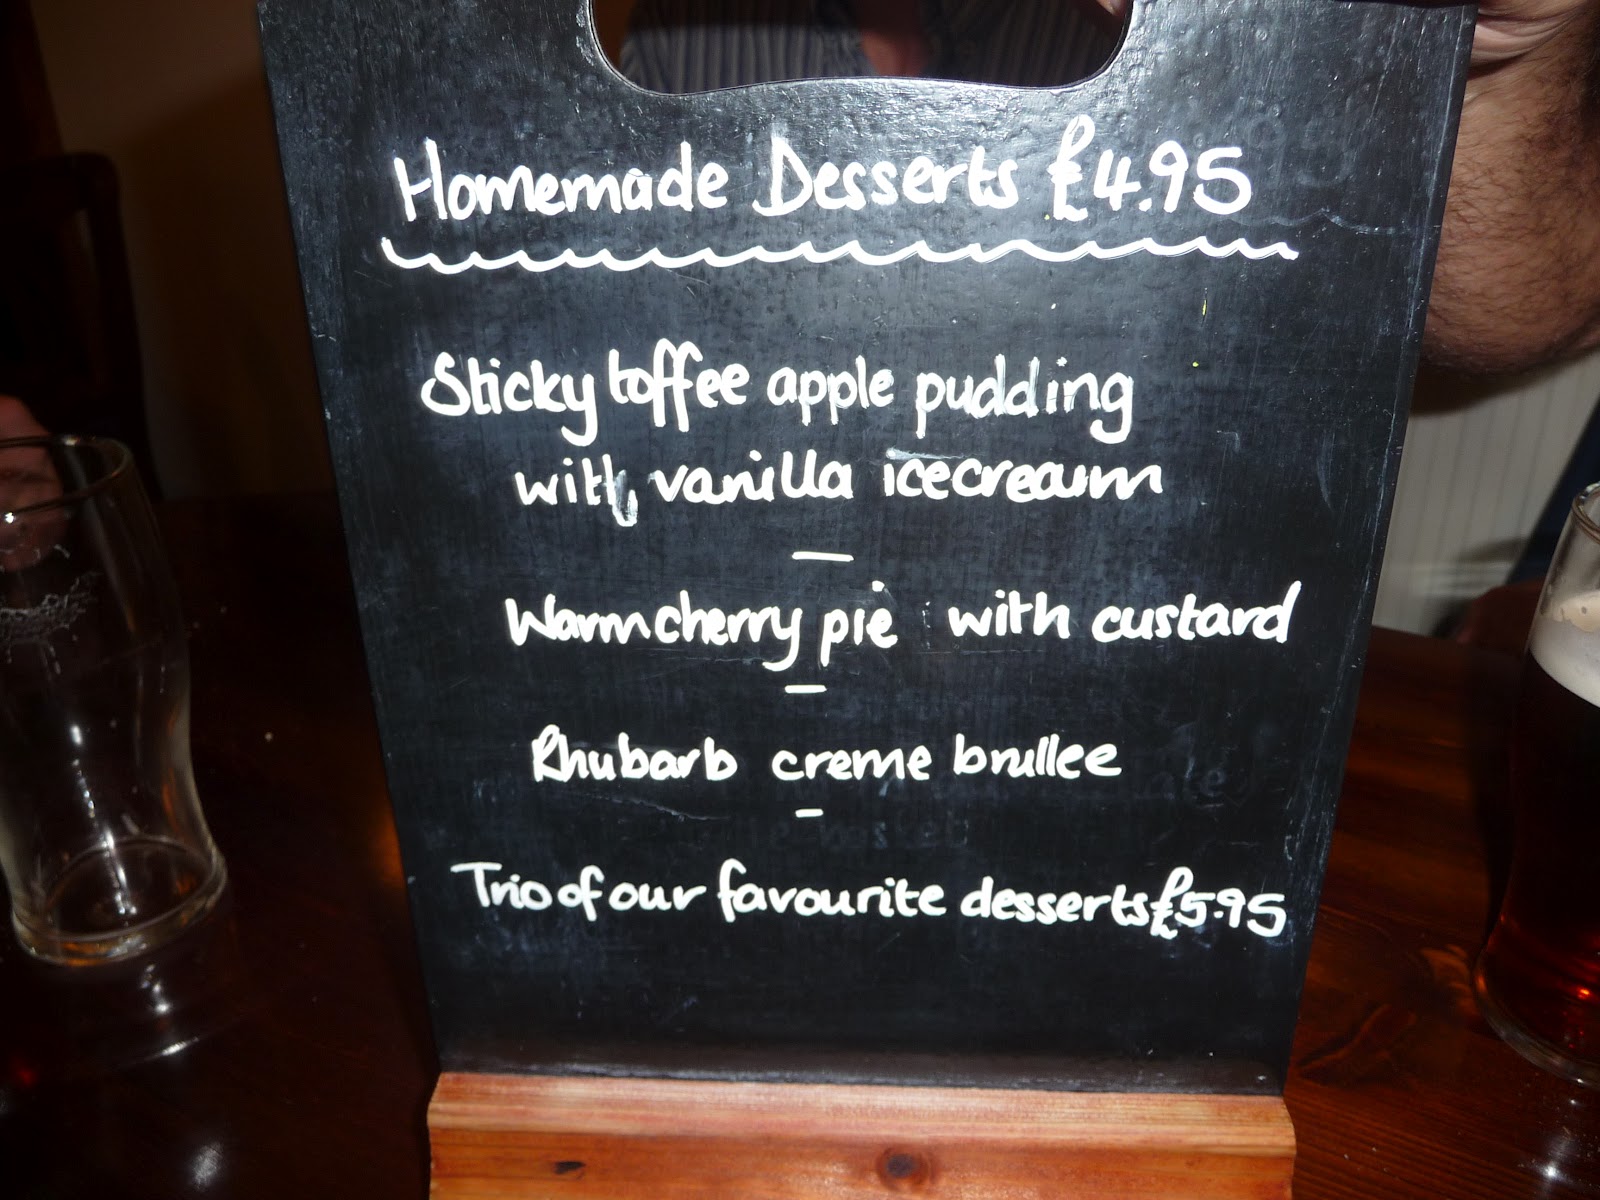 Homemade Desserts £4.95
Sticky toffee apple pudding
with vanilla icecream
Warm cherry pie with custard
Rhubarb creme brullee
Trio of our favourite desserts £5.95